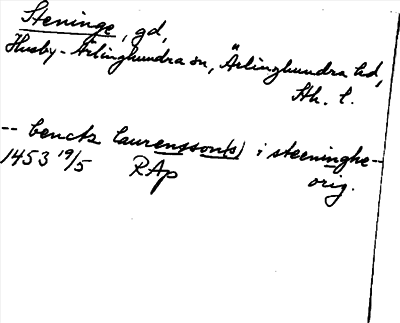 Steninge, gd,
Husby-Ärlinghundra sn, Ärlinghundra hd,
Sth. l.
-- benctz laurensson(s) i steeninghe --
1453 19/5 RAp orig.